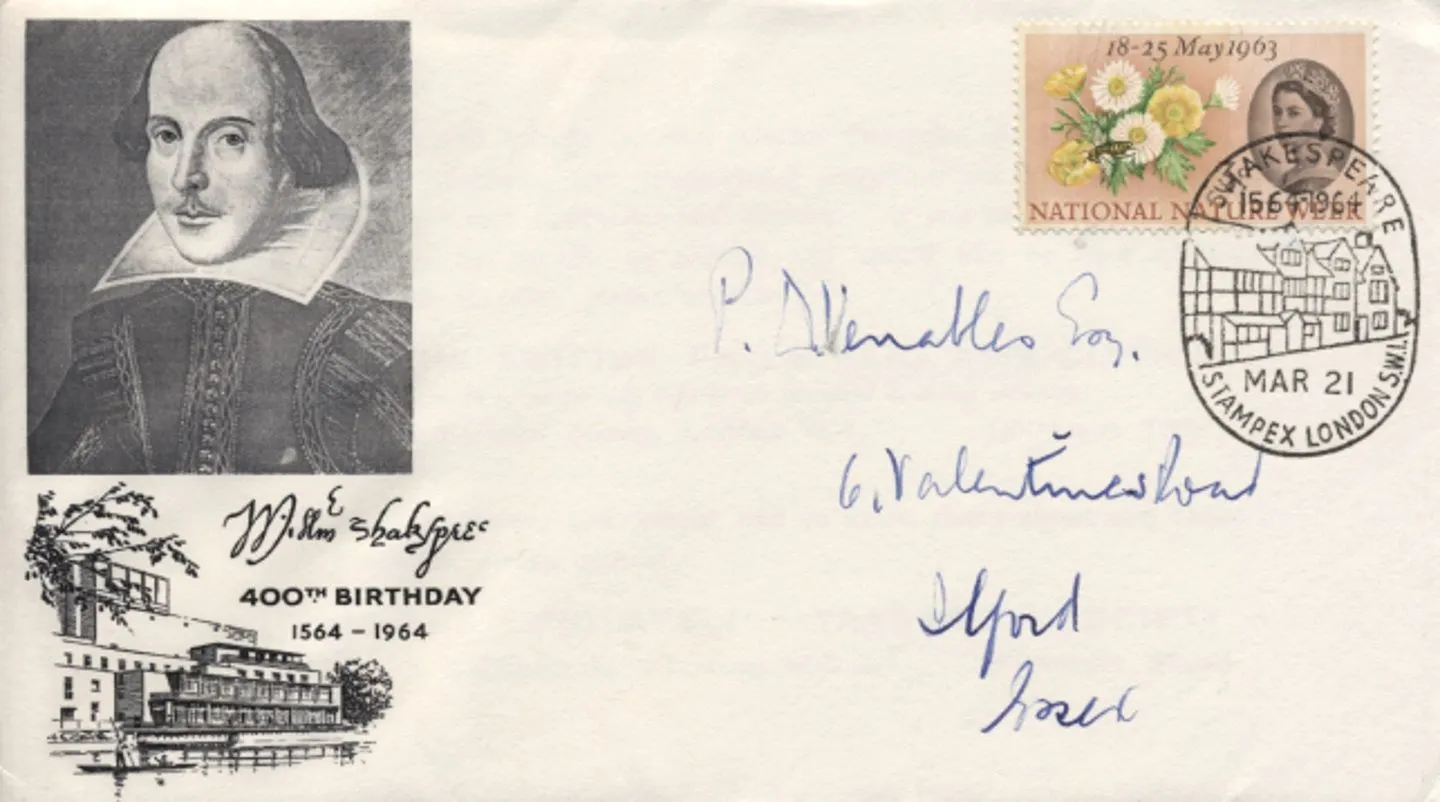 18-25 May 1963
NATIONAL NATURE WEEK
SHAKESPEARE
1564-1964
MAR 21
STAMPEX LONDON S.W.1.
P. D. Venables Esq.
6, Valentines Road
Ilford
Essex
Willm Shakspere
400TH BIRTHDAY
1564 - 1964